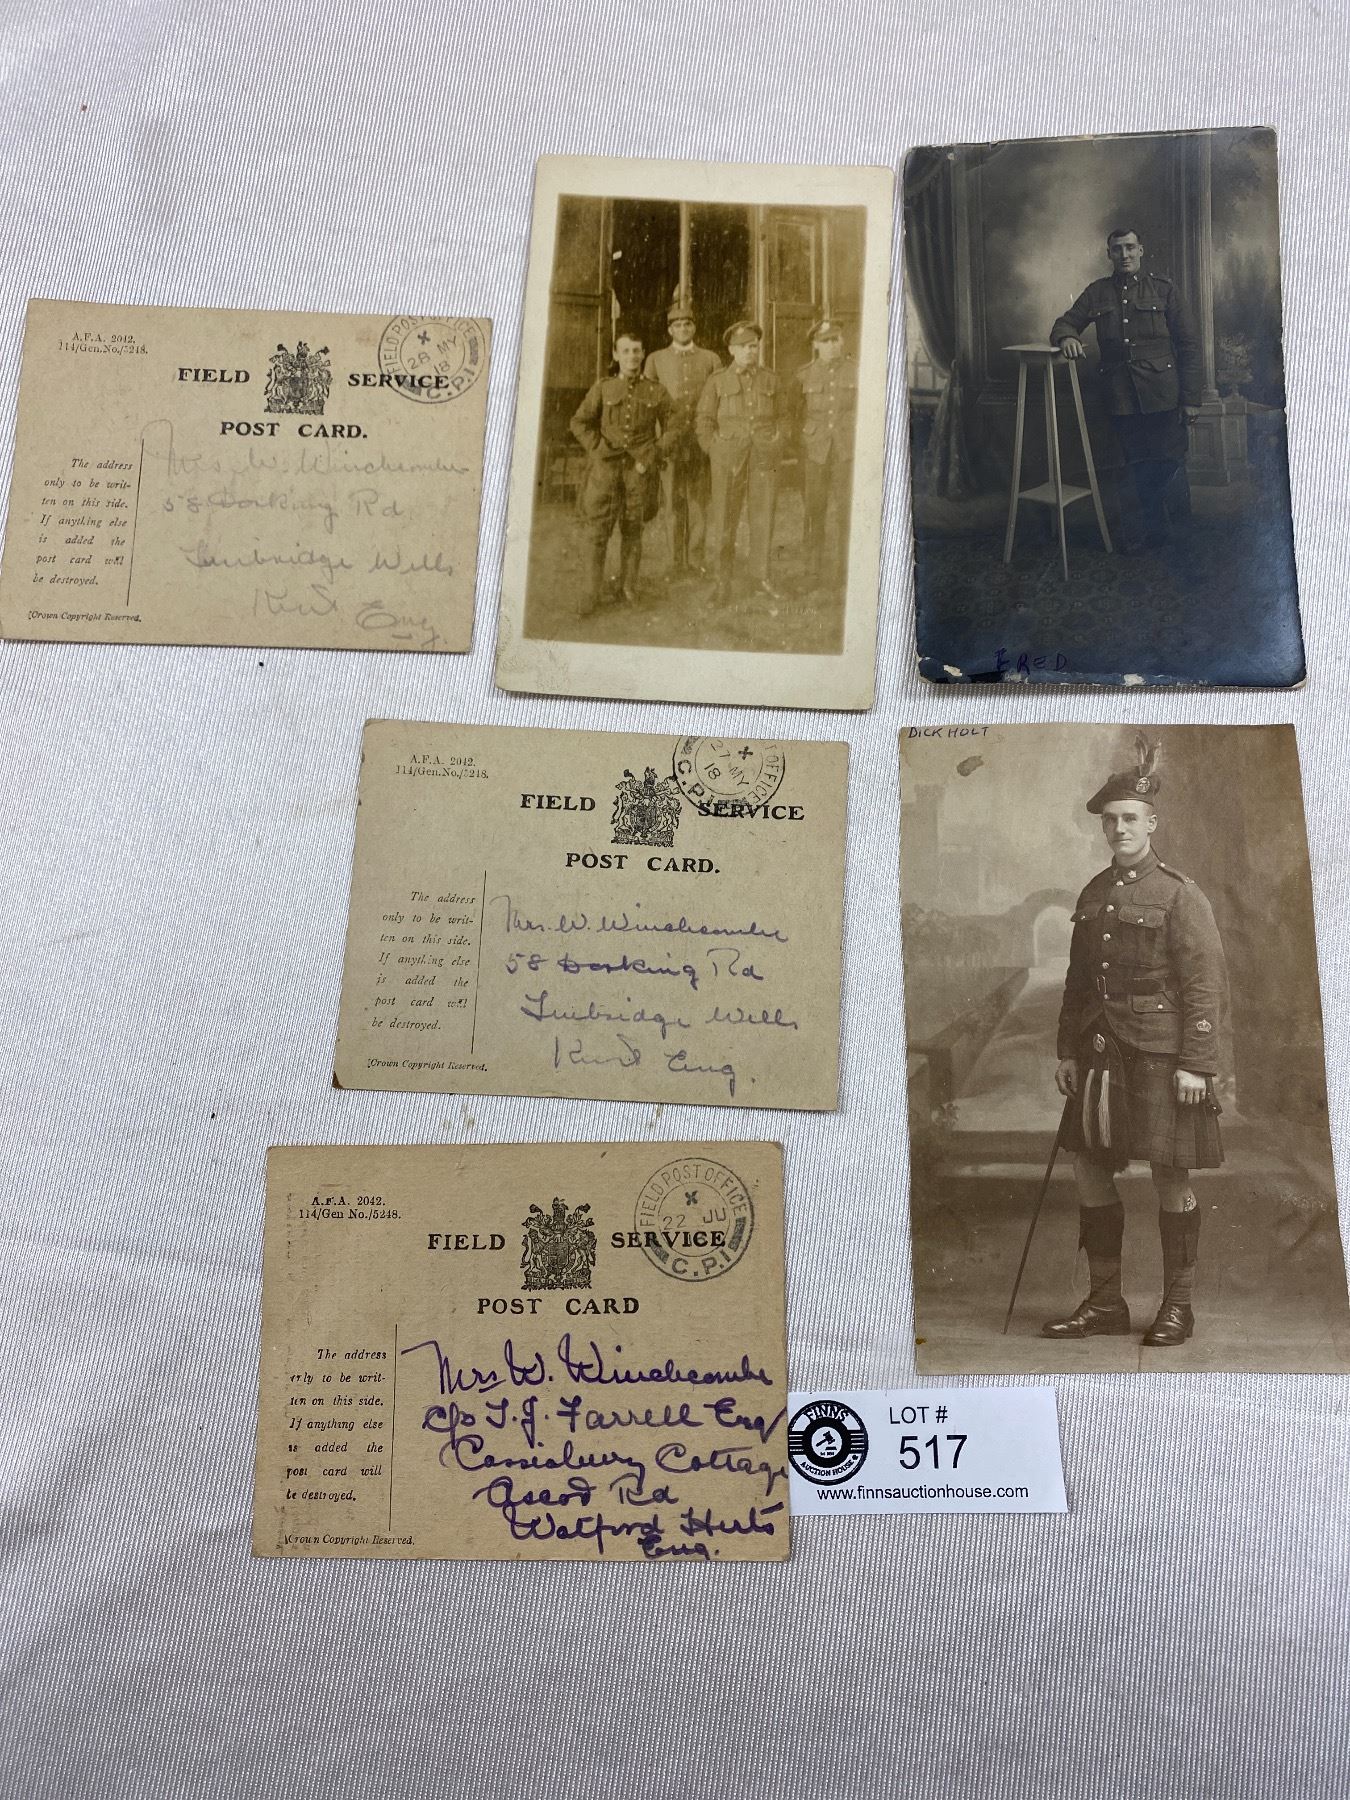 A.F.A. 2042.
114/Gen.No./5248.
FIELD POST OFFICE
28 MY
18
C.P.1
FIELD SERVICE
POST CARD.
The address
only to be writ-
ten on this side.
If anything else
is added the
post card will
be destroyed.
[Crown Copyright Reserved.
Mrs W. Winchcombe
58 Dorking Rd
Tunbridge Wells
Kent Eng.
FRED
A.F.A. 2042.
114/Gen.No./5248.
OFFICE
27 MY
18
C.P.
FIELD SERVICE
POST CARD.
The address
only to be writ-
ten on this side.
If anything else
is added the
post card will
be destroyed.
[Crown Copyright Reserved.
Mrs. W. Winchcombe
58 Dorking Rd
Tunbridge Wells
Kent Eng.
DICK HOLT
A.F.A. 2042.
114/Gen No./5248.
FIELD POST OFFICE
22 JU
C.P.1
FIELD SERVICE
POST CARD
The address
only to be writ-
ten on this side.
If anything else
is added the
post card will
be destroyed.
[Crown Copyright Reserved.
Mrs W. Winchcombe
c/o T. J. Farrell Esq
Cassiobury Cottage
Ascot Rd
Watford Herts
Eng.
FINNS
AUCTION HOUSE
LOT #
517
www.finnsauctionhouse.com